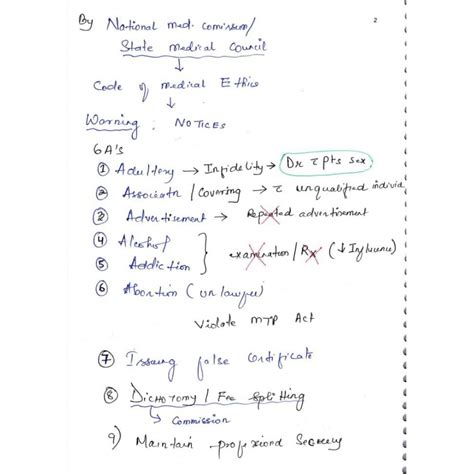 2
By National med. Comission/
State Medical Council
↓
Code of medical Ethics
↓
Warning : NOTICES
6A's
① Adultery → Infidelity → Dr c̄ pts sex
② Associatn / Covering → c̄ unqualified individ
③ Advertisement → Repeated advertisement
④ Alcohol
⑤ Addiction } examination / Rx (↓ Influence)
⑥ Abortion (unlawful)
Violate MTP Act
⑦ Issuing false certificate
⑧ DICHOTOMY / Fee splitting
↳ Commission
9) Maintain professional Secrecy